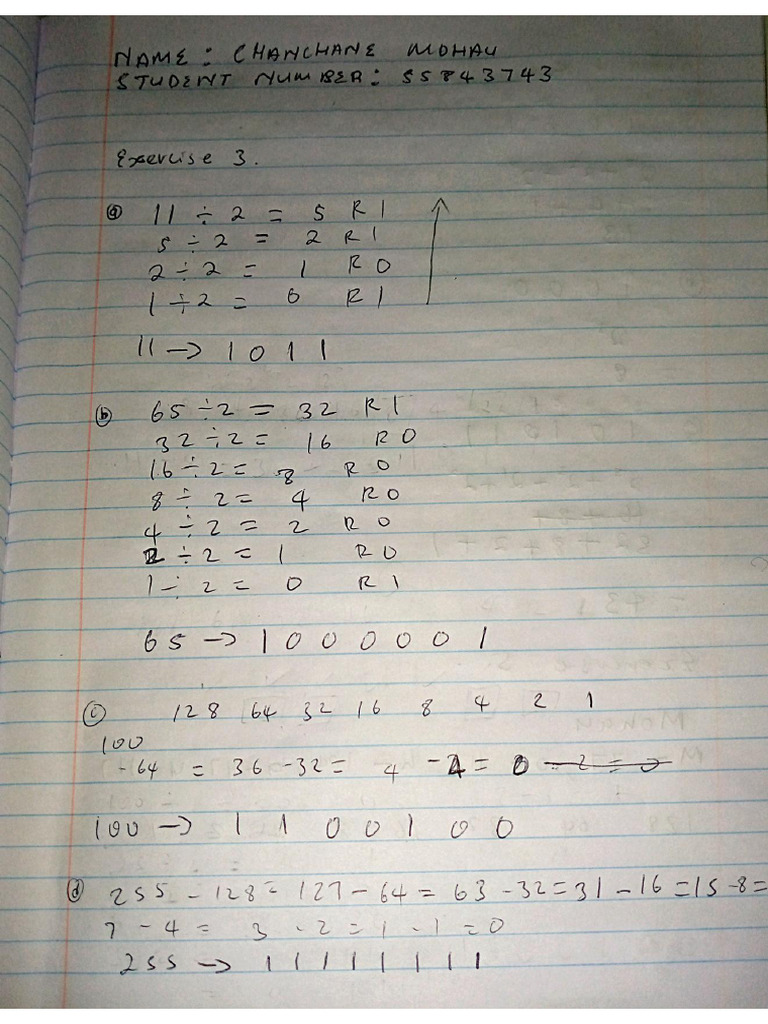 NAME: CHANCHANE MOHAU
STUDENT NUMBER: 55843743
Exercise 3.
(a) 11 ÷ 2 = 5 R1
5 ÷ 2 = 2 R1
2 ÷ 2 = 1 R0
1 ÷ 2 = 0 R1
11 → 1 0 1 1
(b) 65 ÷ 2 = 32 R1
32 ÷ 2 = 16 R0
16 ÷ 2 = 8 R0
8 ÷ 2 = 4 R0
4 ÷ 2 = 2 R0
2 ÷ 2 = 1 R0
1 ÷ 2 = 0 R1
65 → 1 0 0 0 0 0 1
(c) 128 64 32 16 8 4 2 1
100
- 64 = 36 - 32 = 4 - 4 = 0 - 2 = 0
100 → 1 1 0 0 1 0 0
(d) 255 - 128 = 127 - 64 = 63 - 32 = 31 - 16 = 15 - 8 =
7 - 4 = 3 - 2 = 1 - 1 = 0
255 → 1 1 1 1 1 1 1 1